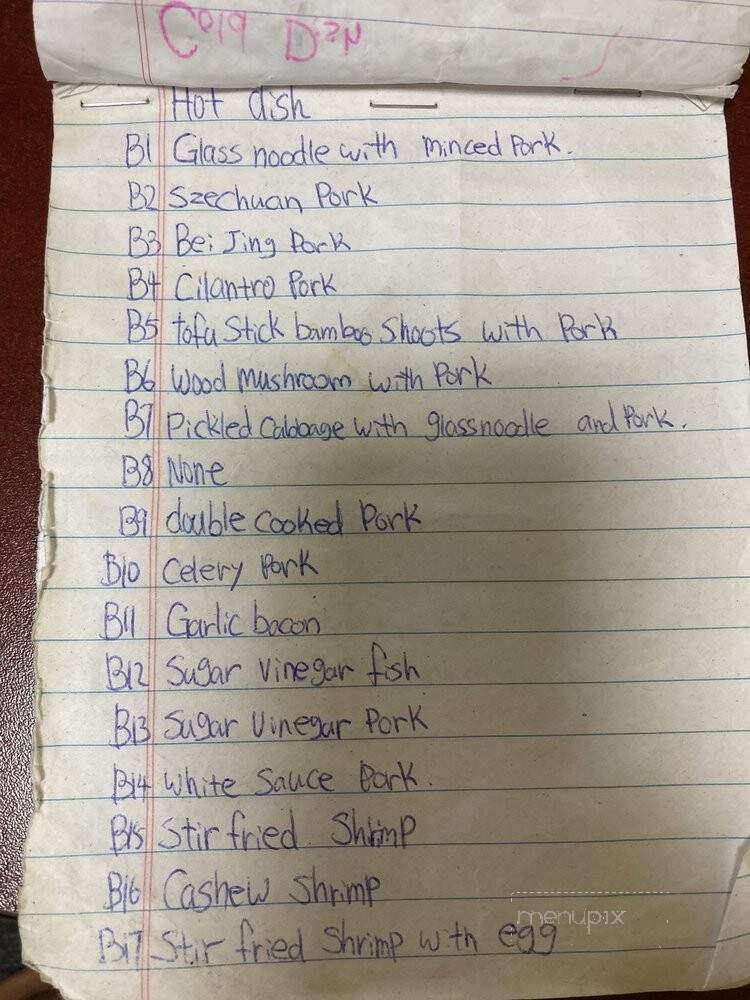 Cold Dish
Hot dish
B1 Glass noodle with minced Pork.
B2 Szechuan Pork
B3 Bei Jing Pork
B4 Cilantro Pork
B5 tofu Stick bamboo Shoots with Pork
B6 Wood mushroom with Pork
B7 Pickled Cabbage with glassnoodle and Pork.
B8 None
B9 double cooked Pork
B10 Celery Pork
B11 Garlic bacon
B12 Sugar Vinegar fish
B13 Sugar Vinegar Pork
B14 White Sauce Pork.
B15 Stir fried Shrimp
B16 Cashew Shrimp
menupix
B17 Stir fried Shrimp with egg